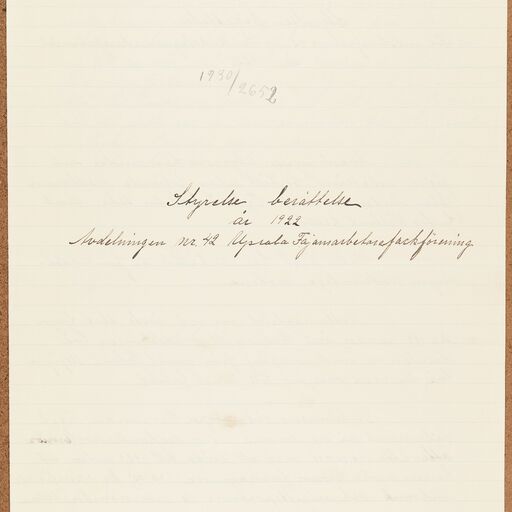 1930/2652
Styrelse berättelse
år 1922
Avdelningen nr. 42 Upsala Fajansarbetarefackförening